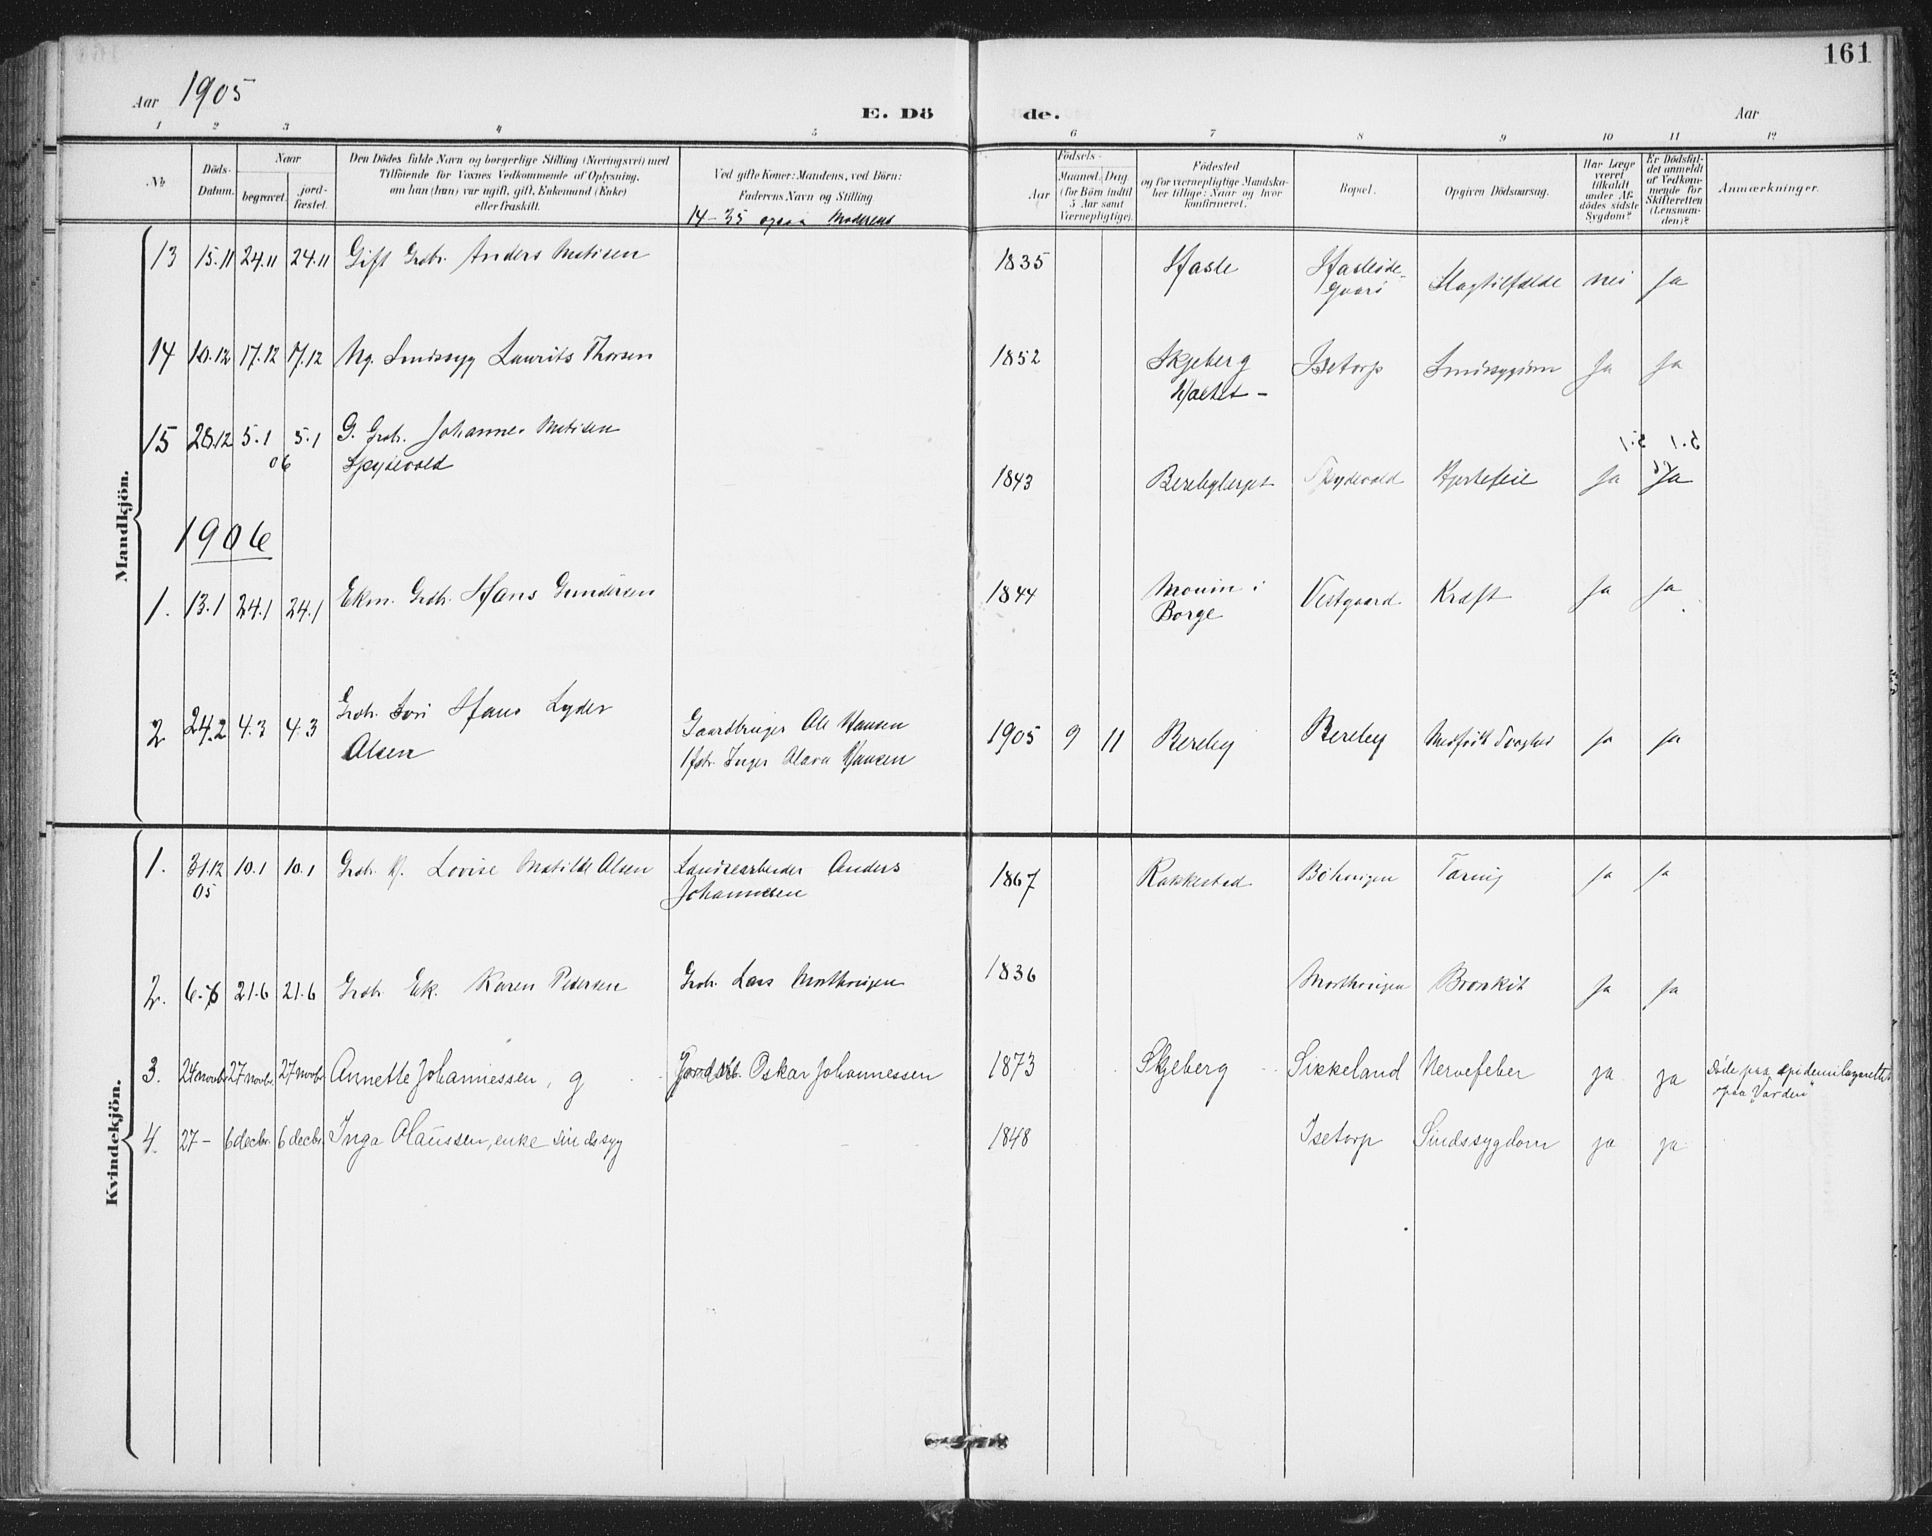 161
Aar 1905
E. Dö
de.
Aar
1 2 3 4 5 6 7 8 9 10 11 12
No
Döds-Datum.
Naar
begravet.
jord-fæstet.
Den Dödes fulde Navn og borgerlige Stilling (Næringsvei) med
Tilföiende for Voxnes Vedkommende af Oplysning,
om han (hun) var ugift, gift, Enkemand (Enke)
eller fraskilt.
Ved gifte Koner: Mandens, ved Börn:
Faderens Navn og Stilling
14-35 ogsaa Moderens
Födsels-
Aar
Maaned. Dag.
(for Börn indtil
5 Aar samt
Værnepligtige).
Födested
og for værnepligtige Mandska-
ber tillige: Naar og hvor
konfirmeret.
Bopæl.
Opgiven Dödsaarsag.
Har Læge
været
tilkaldt
under Af-
dödes sidste
Sygdom?
Er Dödsfal-
det anmeldt
af Vedkom-
mende for
Skifteretten
(Lensman-
den)?
Anmærkninger.
Mandkjön.
13 15.11 24.11 24.11 Gift Grdbr. Anders Matisen 1835 Hasle nei ja
Slagtilfælde
14 10.12 17.12 17.12 Ug. Sindssyg Laurits Thorsen 1852 Skjeberg Isetorp Ja Ja
15 28.12 5.1 5.1 G. Grdb. Johannes Matisen
06 Spydevold 1843 Spydevold Hjertefeil Ja Ja
5.1 5.1
1906
1. 13.1 24.1 24.1 Ekm. Grdb. Hans Gundersen 1844 Moum i Vestgaard Kræft Ja Ja
Borge
2 24.2 4.3 4.3 Grdbr. Søn Hans Lyder Gaardbruger Ole Hansen 1905 9 11 Bereby Bereby Medfødt Svaghed ja ja
Olsen Hstr. Inger Olava Hansen
Kvindekjön.
1. 31.12 10.1 10.1 Grdb. H. Lovise Matilde Olsen Anders 1867 Rakkestad Tæring Ja Ja
05 Johannesen
2. 6.6 21.6 21.6 Grdb. Ek. Karen Pedersen Grdb. Lars 1836 Bronkit Ja Ja
3. 24 novbr. 27 novbr. 27 novbr. Annette Johannessen, g Oskar Johannessen 1873 Skjeberg Sikkeland Nervefeber ja ja Døde paa epidemilazarettet
paa "Varden"
4. 27 - 6 decbr. 6 decbr. Inga Olaussen, enke sindssyg - - 1848 Isetorp Sindssygdom ja ja